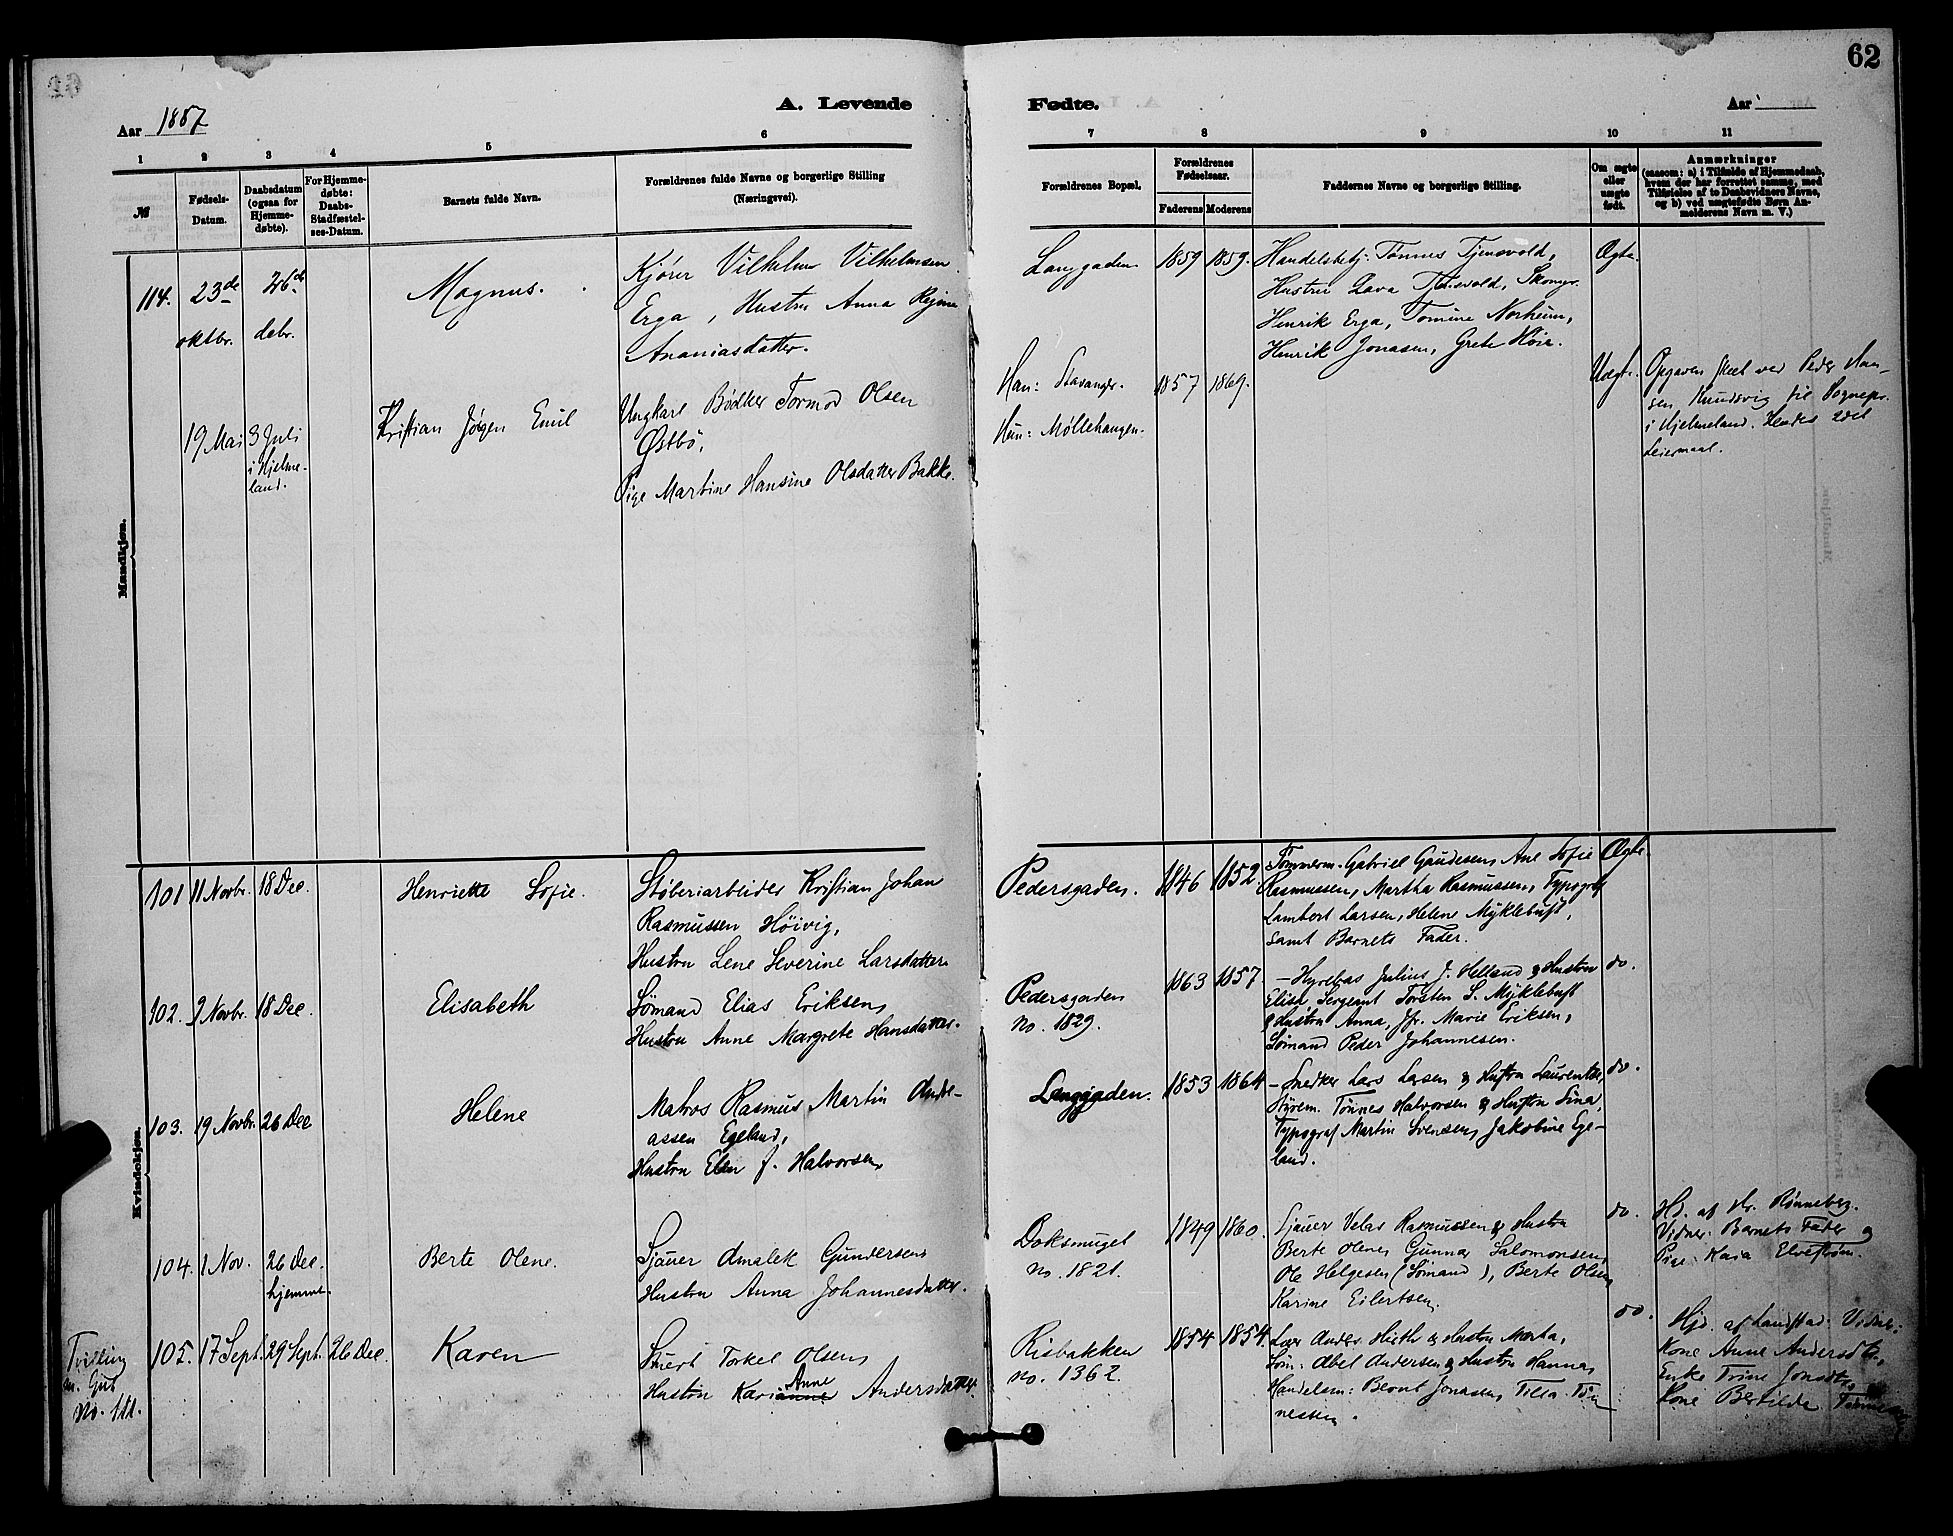 62
A. Levende
Fødte.
Aar 1887
Aar
1 2 3 4 5 6 7 8 9 10 11
№
Fødsels-Datum.
Daabsdatum (ogsaa for Hjemmedøbte).
For Hjemmedøbte: Daabs-Stadfæstelses-Datum.
Barnets fulde Navn.
Forældrenes fulde Navne og borgerlige Stilling (Næringsvei).
Forældrenes Bopæl.
Forældrenes Fødselsaar.
Faderens Moderens
Faddernes Navne og borgerlige Stilling.
Om ægte eller uægte født.
Anmærkninger
(saasom: a) i Tilfælde af Hjemmedaab,
hvem der har forrettet samme, med
Tilføielse af to Daabsvidners Navne,
og b) ved uægtefødte Børn An-
melderens Navn m. V.)
Mandkjøn.
114. 23de oktbr. 26de debr.
Magnus.
Kjører Vilhelm Vilhelmsen
Erga, Hustru Anna Regine
Ananiasdatter.
Langgaden 1859 1859.
Handelsbetj. Tønnes Tjensvold,
Hustru Lava Tjensvold, Skomgr.
Henrik Erga, Tomine Norheim,
Henrik Jonasen, Grete Høie.
Ægte.
19 Mai 3 Juli
i Hjelme-
land.
Kristian Jørgen Emil
Ungkarl Bødker Tormod Olsen
Østbö,
Pige Martine Hansine Olsdatter Bakke.
Han: Stavanger. 1857 1869.
Hun: Møllehaugen.
Uægte.
Opgaven skeet ved Peder Han-
sen Knudsvig til Sognepr.
i Hjelmeland. Hendes 2det
Leiermaal.
Kvindekjøn.
101 11 Novbr. 18 Dec.
Henriette Sofie.
Støberiarbeider Kristian Johan
Rasmussen Höivig,
Hustru Lene Severine Larsdatter
Pedersgaden. 1846 1852.
Tømmerm. Gabriel Gaudesen, Ane Sofie
Rasmussen, Martha Rasmussen, Typograf
Lambert Larsen, Helene Mÿklebust,
samt Barnets Fader.
Ægte.
102. 9 Novbr. 18 Dec.
Elisabeth
Sömand Elias Eriksen,
Hustru Anne Margrete Hansdatter.
Pedersgaden
No. 1829.
1863 1857
- Hyrebas Julius J. Helland & Hustru
Elise, Sergeant Torsten S. Mÿklebust
& Hustru Anna, Jfr. Marie Eriksen,
Sømand Peder Johannesen.
do.
103. 19 Novbr. 26 Dec
Helene
Matros Rasmus Martin Andre-
assen Egeland,
Hustru Elen J. Halvorsen,
Langgaden. 1853 1864
- Snedker Lars Larsen & Hustru Laurentse,
Styrem. Tönnes Halvorsen & Hustru Sina,
Typograf Martin Svendsen, Jakobine Ege-
land.
do.
104. 1 Nov. 26 Dec. hjemme.
Berte Olene.
Sjauer Amalek Gundersen
Hustru Anna Johannesdatter.
Doksmuget
No. 1821.
1849 1860.
Sjauer Velas Rasmussen & Hustru
Berte Olene, Gunnar Salomonsen,
Ole Helgesen (Sömand), Berte Olsen
Karine Eilertsen.
do.
Hd. af Fr. Rønneberg.
Vidner: Barnets Fader og
Pige Kaia Elvestrøm.
Tvilling
m. Gut
No. 111.
105. 17 Sept. 29 Sept. 26 Dec.
Karen
Stuert Torkel Olsen,
Hustru Karianne Anne Andersdatter
Risbakken
No. 1362.
1854 1854.
Lær. Anders Hieth & Hustru Marta,
Søm: Abel Andersen & Hustru Hanna,
Handelsm: Bernt Jonassen, Tilia Tön
nessen.
do.
Hjd. af Landstad. Vidner:
Kone Anne Andersdtr.,
Enke Trine Jonsdtr.
Kone Bertilde Tönnesen